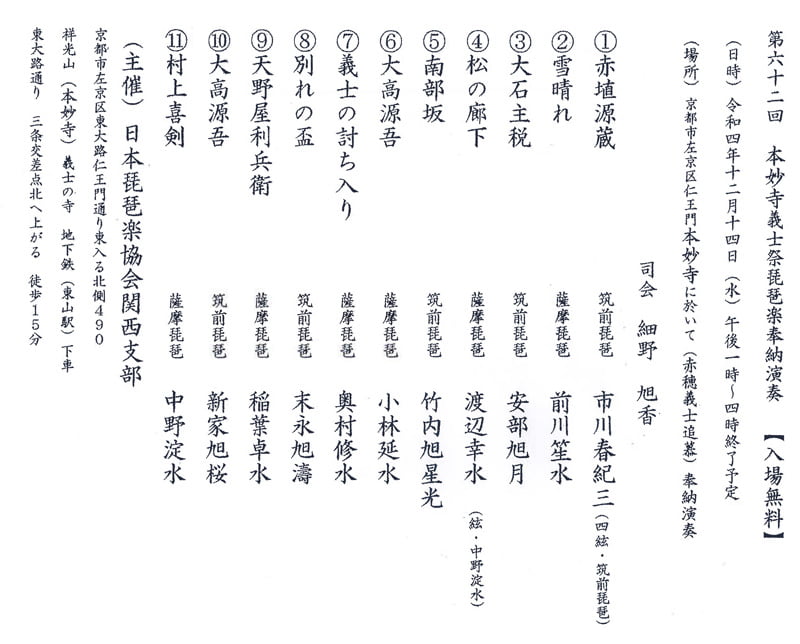 第六十二回　本妙寺義士祭琵琶楽奉納演奏　【入場無料】
（日時）令和四年十二月十四日（水）午後一時〜四時終了予定
（場所）京都市左京区仁王門本妙寺に於いて（赤穂義士追慕）奉納演奏
司会　細野　旭香
①赤埴源蔵　筑前琵琶　市川春紀三（四絃・筑前琵琶）
②雪晴れ　薩摩琵琶　前川笙水
③大石主税　筑前琵琶　安部旭月
④松の廊下　薩摩琵琶　渡辺幸水（絃・中野淀水）
⑤南部坂　筑前琵琶　竹内旭星光
⑥大高源吾　薩摩琵琶　小林延水
⑦義士の討ち入り　薩摩琵琶　奥村修水
⑧別れの盃　筑前琵琶　末永旭濤
⑨天野屋利兵衛　薩摩琵琶　稲葉卓水
⑩大高源吾　筑前琵琶　新家旭桜
⑪村上喜剣　薩摩琵琶　中野淀水
（主催）日本琵琶楽協会関西支部
京都市左京区東大路仁王門通り東入る北側４９０
祥光山（本妙寺）義士の寺　地下鉄（東山駅）下車
東大路通り　三条交差点北へ上がる　徒歩１５分